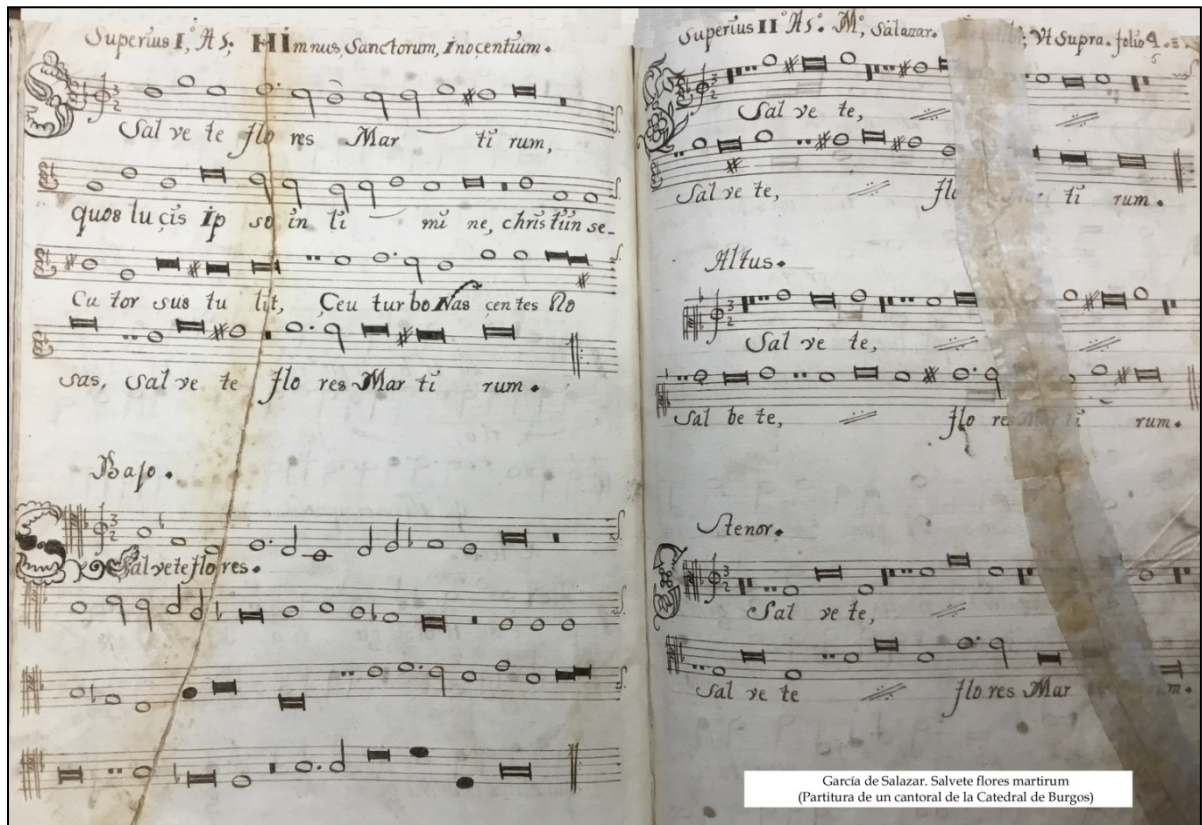 Superius I, º A 5; HImnus, Sanctorum, Inocentium.
Sal ve te flo res Mar ti rum,
quos lu çis Ip so in li mi ne, christi in se-
Cu tor sus tu lit, Çeu tur bo Nas çen tes Ro
sas, Sal ve te flo res Mar ti rum.
Bajo.
Salvete flores.
Superius II º A 5º. Mº, Salazar. Vt Supra. folio 4.
5
Sal ve te,
Sal ve te, flo Mar ti rum.
Altus.
Sal ve te,
Sal be te, flo res Mar ti rum.
Tenor.
Sal ve te,
Sal ve te flo res Mar
García de Salazar. Salvete flores martirum
(Partitura de un cantoral de la Catedral de Burgos)